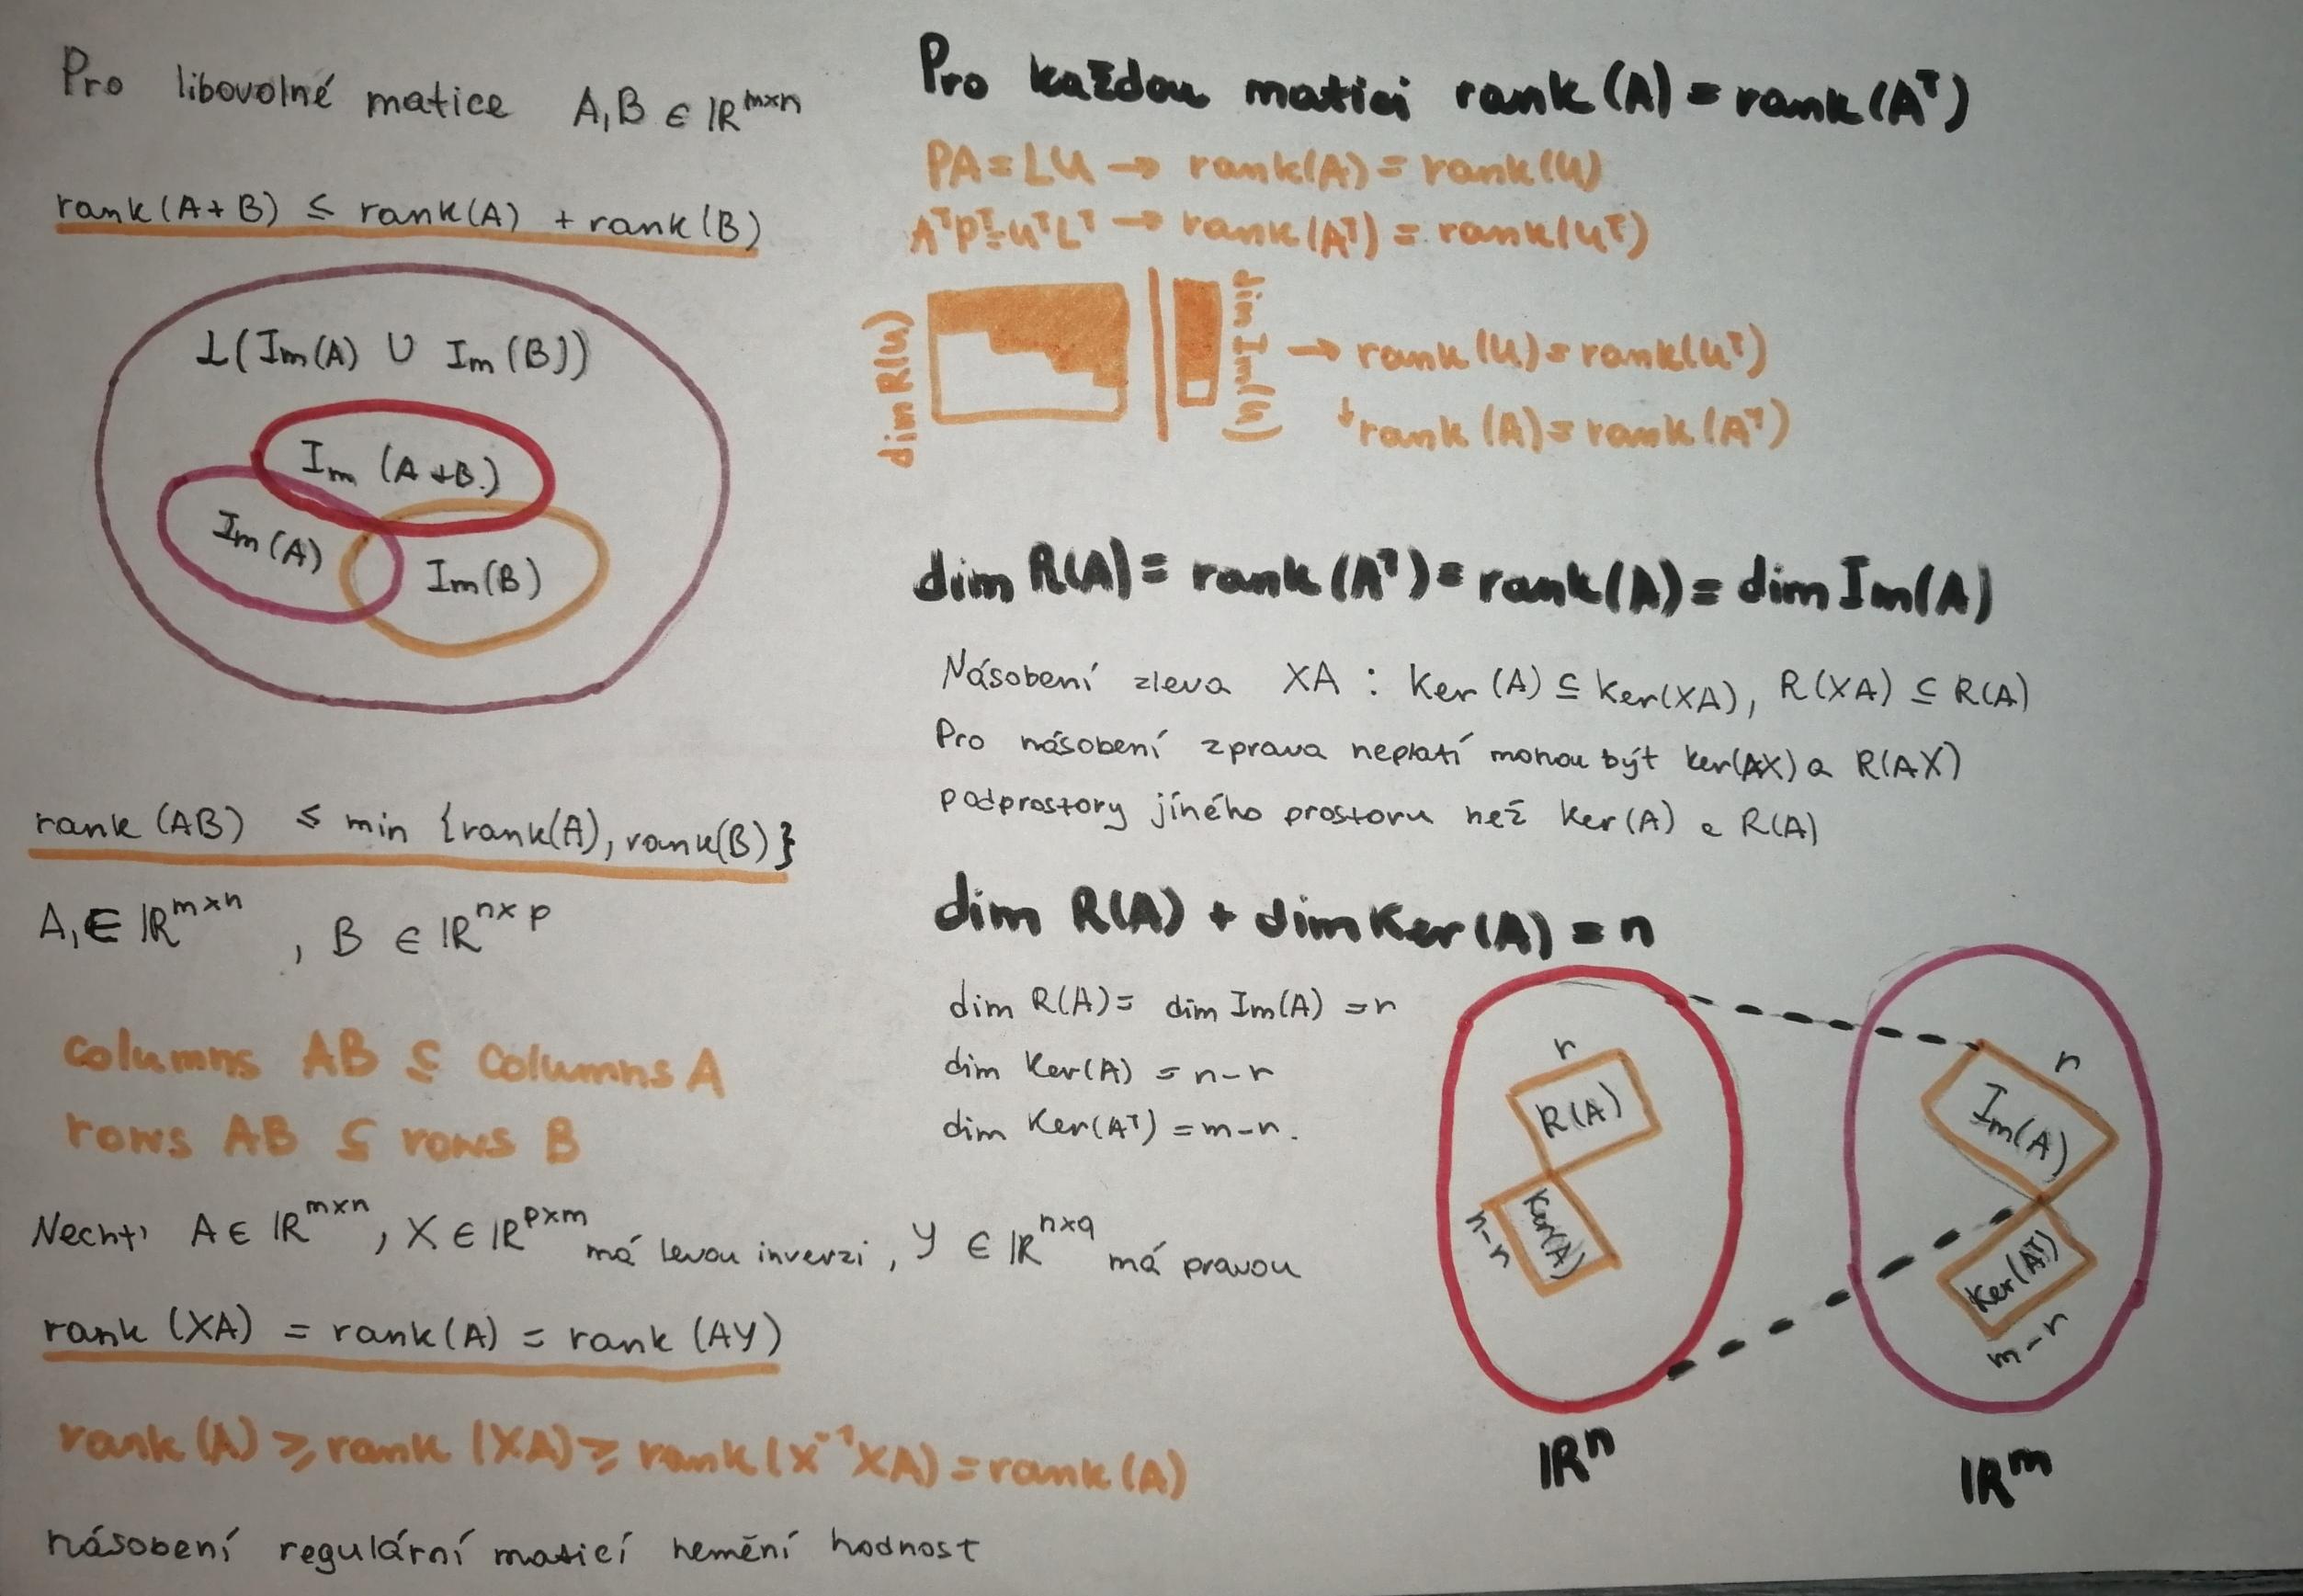 Pro libovolné matice A,B ∈ ℝ^{m×n}
rank(A+B) ≤ rank(A) + rank(B)
L(Im(A) ∪ Im(B))
Im(A+B)
Im(A)
Im(B)
rank(AB) ≤ min {rank(A), rank(B)}
A, ∈ ℝ^{m×n}, B ∈ ℝ^{n×p}
columns AB ⊆ columns A
rows AB ⊆ rows B
Nechť A ∈ ℝ^{m×n}, X ∈ ℝ^{p×m} má levou inverzi, Y ∈ ℝ^{n×q} má pravou
rank(XA) = rank(A) = rank(AY)
rank(A) ≥ rank(XA) ≥ rank(X^{-1}XA) = rank(A)
násobení regulární maticí nemění hodnost
Pro každou matici rank(A) = rank(A^T)
PA = LU → rank(A) = rank(U)
A^T P^T = U^T L^T → rank(A^T) = rank(U^T)
dim R(U)
dim Im(U)
→ rank(U) = rank(U^T)
↓ rank(A) = rank(A^T)
dim R(A) = rank(A^T) = rank(A) = dim Im(A)
Násobení zleva XA : Ker(A) ⊆ Ker(XA), R(XA) ⊆ R(A)
Pro násobení zprava neplatí mohou být Ker(AX) a R(AX)
podprostory jiného prostoru než Ker(A) a R(A)
dim R(A) + dim Ker(A) = n
dim R(A) = dim Im(A) = r
dim Ker(A) = n-r
dim Ker(A^T) = m-r.
r
R(A)
Ker(A)
n-r
ℝ^n
r
Im(A)
Ker(A^T)
m-r
ℝ^m